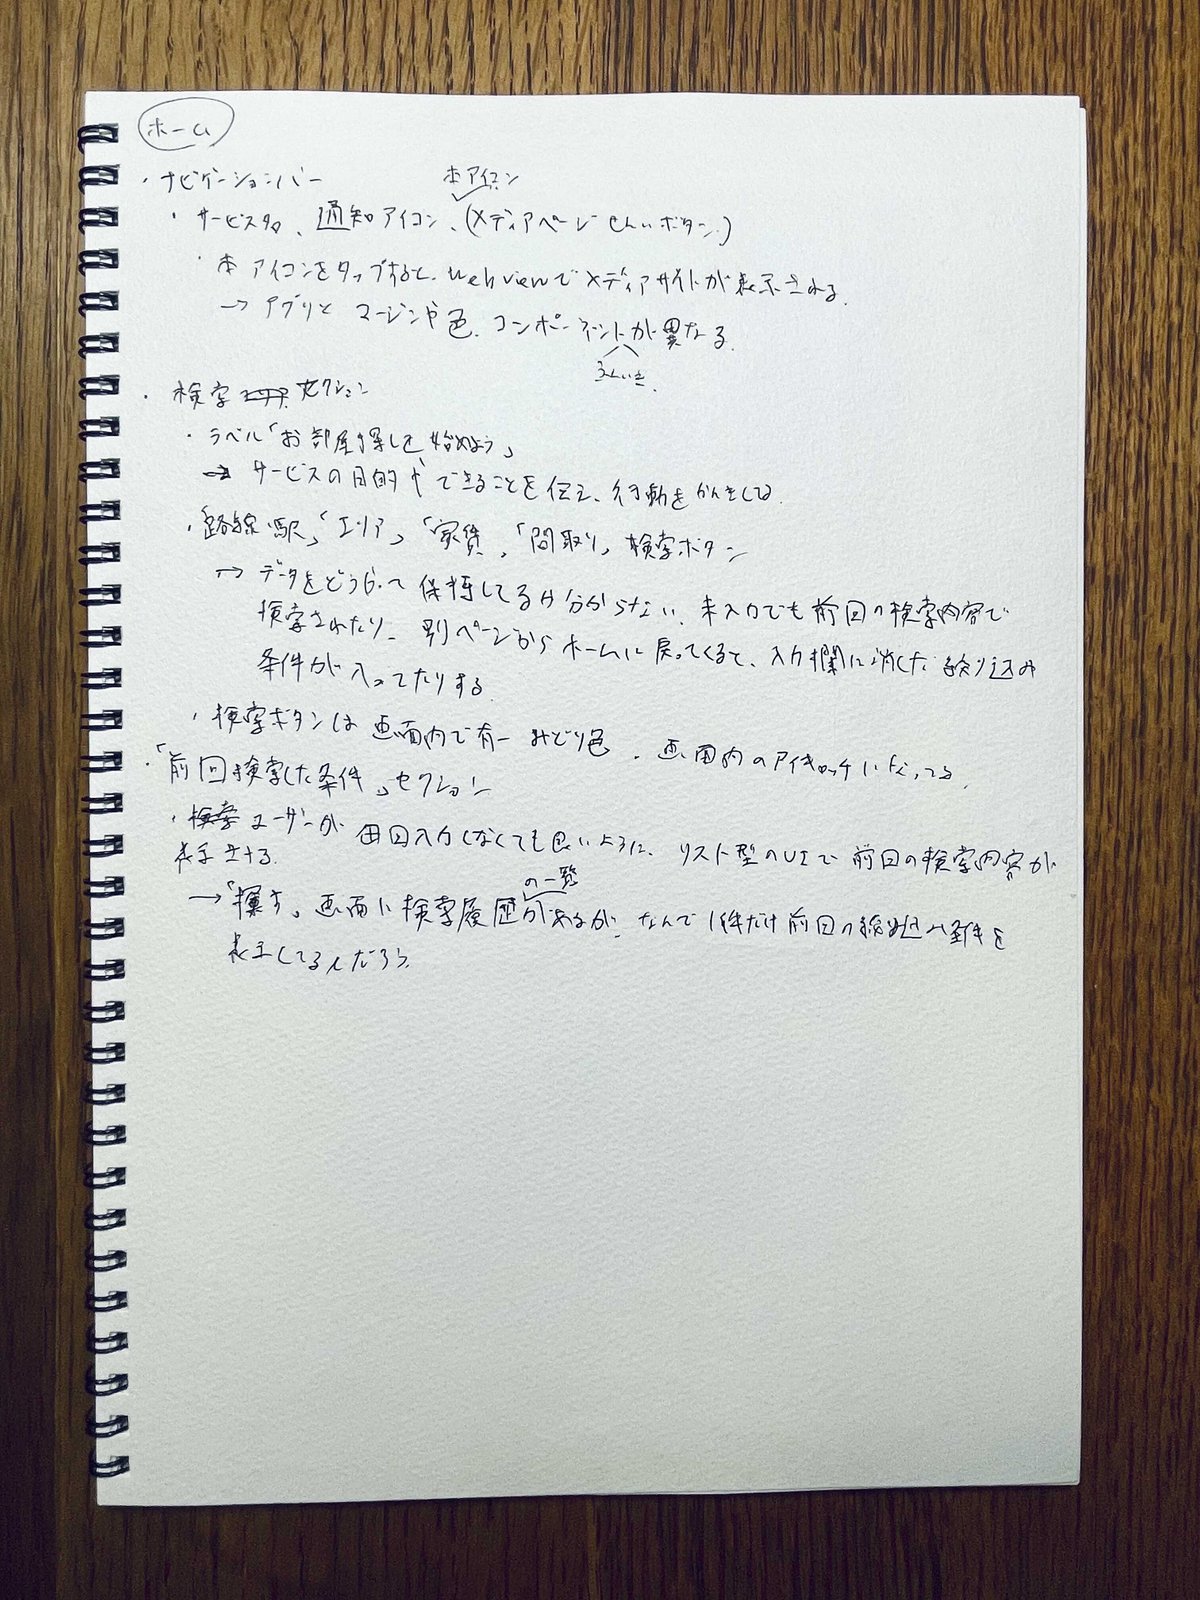 ホーム
・ナビゲーションバー
本アイコン
・サービス名、通知アイコン、(メディアページせんいボタン)
・本アイコンをタップすると、webviewでメディアサイトが表示される。
→アプリと マージンや色、コンポーネントが異なる。
・検索 セクション
・ラベル「お部屋探しを始めよう」
→サービスの目的やできることを伝え、行動をかんきしてる。
・「路線・駅」「エリア」、「家賃」、「間取り」、検索ボタン
→データをどうやって保持してるか分からない。未入力でも前回の検索内容で
検索されたり、別ページからホームに戻ってくると、入力欄に消した絞り込み
条件が入ってたりする。
・検索ボタンは画面内で唯一みどり色。画面内のアイキャッチになってる。
・「前回検索した条件」セクション
・ユーザーが毎回入力しなくても良いように、リスト型のUIで前回の検索内容が
表示される。
の一覧
→「探す」画面に検索履歴があるが、なんで1件だけ前回の絞り込み条件を
表示してるんだろう。